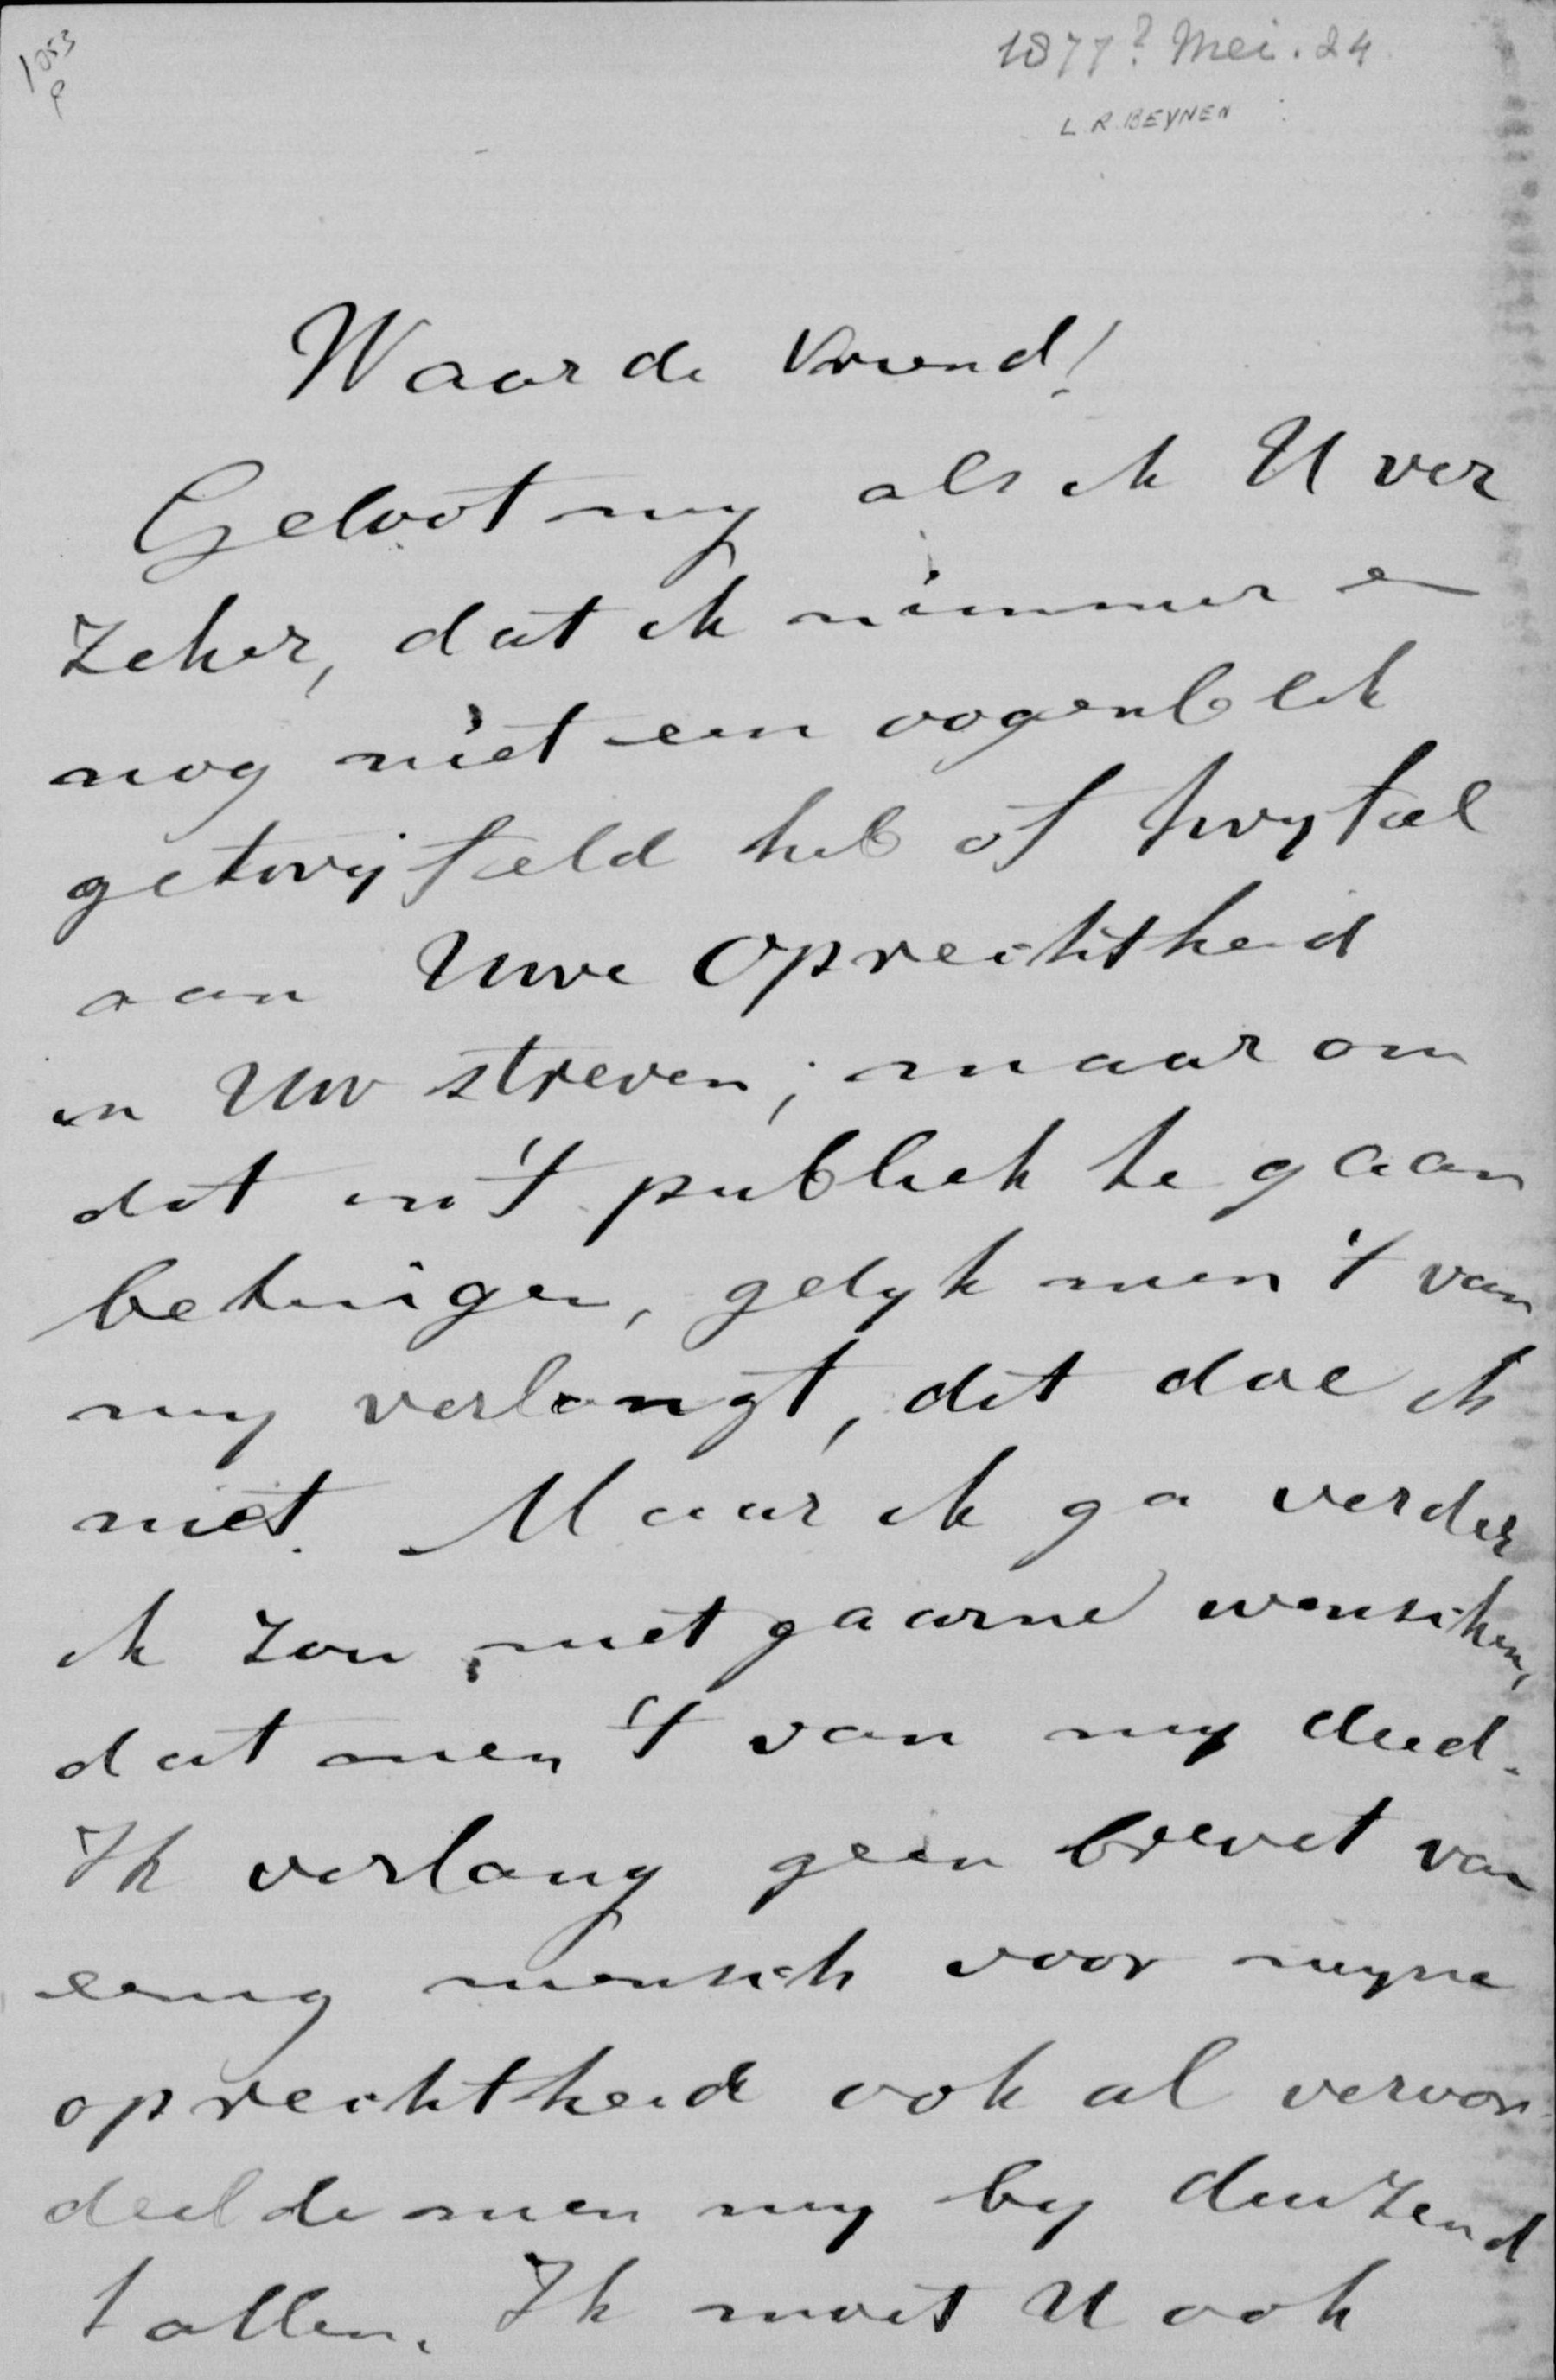 1053
1877? Mei. 24
L R BEYNEN
Waarde Vriend!
Geloof my als ik U ver
zeker, dat ik nimmer en
nog niet een oogenblik
getwijfeld heb of twyfel
aan Uwe Oprechtheid
in Uw streven; maar om
dat in 't publiek te gaan
betuigen, gelyk men 't van
my verlangt, dit doe ik
niet. Maar ik ga verder
ik zou niet gaarne wenschen,
dat men 't van my deed.
Ik verlang geen brevet van
eenig mensch voor myne
oprechtheid ook al veroor-
deelde men my by duizend
tallen. Ik moet U ook